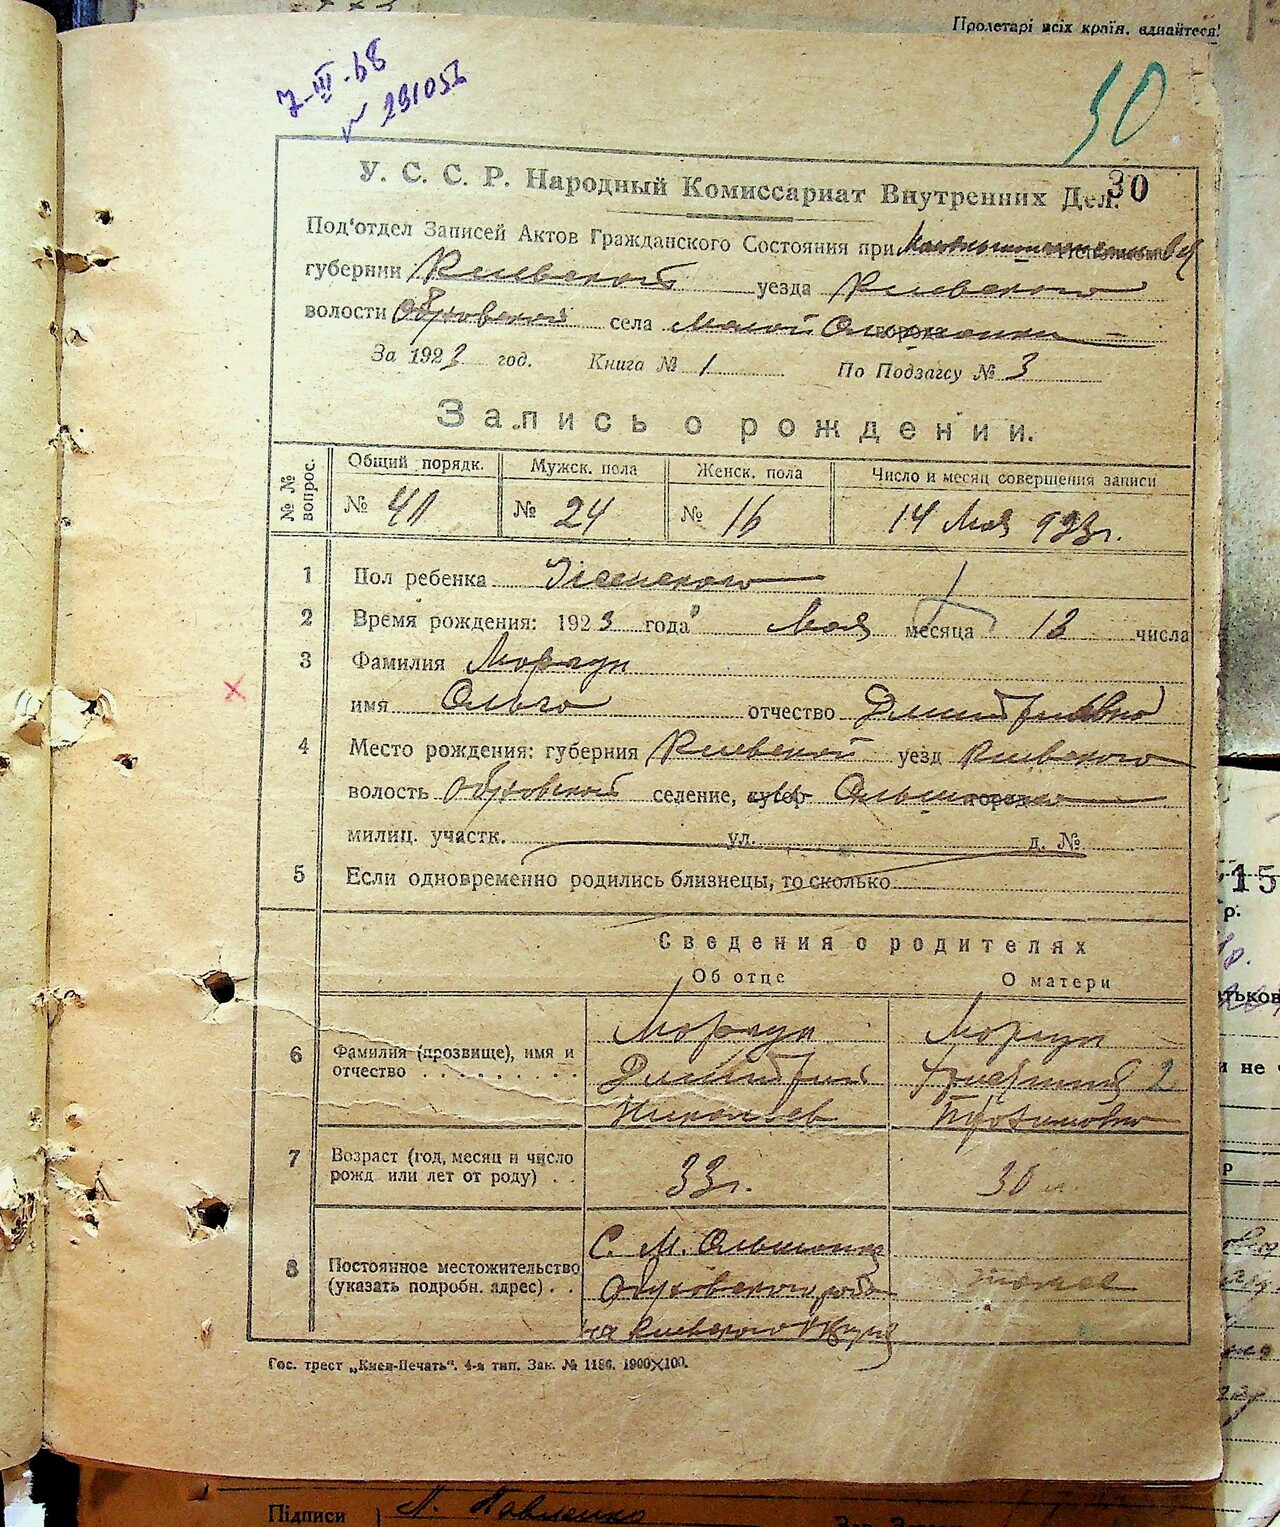 Пролетарі всіх країн, єднайтеся!
7-III-68
№ 291052
50
30
У. С. С. Р. Народный Комиссариат Внутренних Дел.
Под'отдел Записей Актов Гражданского Состояния при
губернии Киевской уезда Киевского
волости Обуховской села Малой Ольшанки
За 1923 год. Книга № 1 По Подзагсу № 3
Запись о рождении.
№ № вопрос.
Общий порядк. Мужск. пола Женск. пола Число и месяц совершения записи
№ 40 № 24 № 16 14 Мая 923г.
1 Пол ребенка Женского
2 Время рождения: 1923 года Мая месяца 13 числа
3 Фамилия
имя Ольга отчество Дмитриевна
4 Место рождения: губерния Киевской уезд Киевского
волость Обуховской селение, хутор Ольшанка город
милиц. участк. ул. д. №
5 Если одновременно родились близнецы, то сколько
Сведения о родителях
Об отце О матери
6 Фамилия (прозвище), имя и
отчество
Дмитрий
Николаев
2
7 Возраст (год, месяц и число
рожд или лет от роду)
33г. 30 л.
8 Постоянное местожительство
(указать подробн. адрес)
С. М. Ольшанка
Обуховского
Киевского
тоже
Гос. трест „Киев-Печать“. 4-я тип. Зак. № 1186. 1900×100.
15
р.
атьков
и не
Підписи